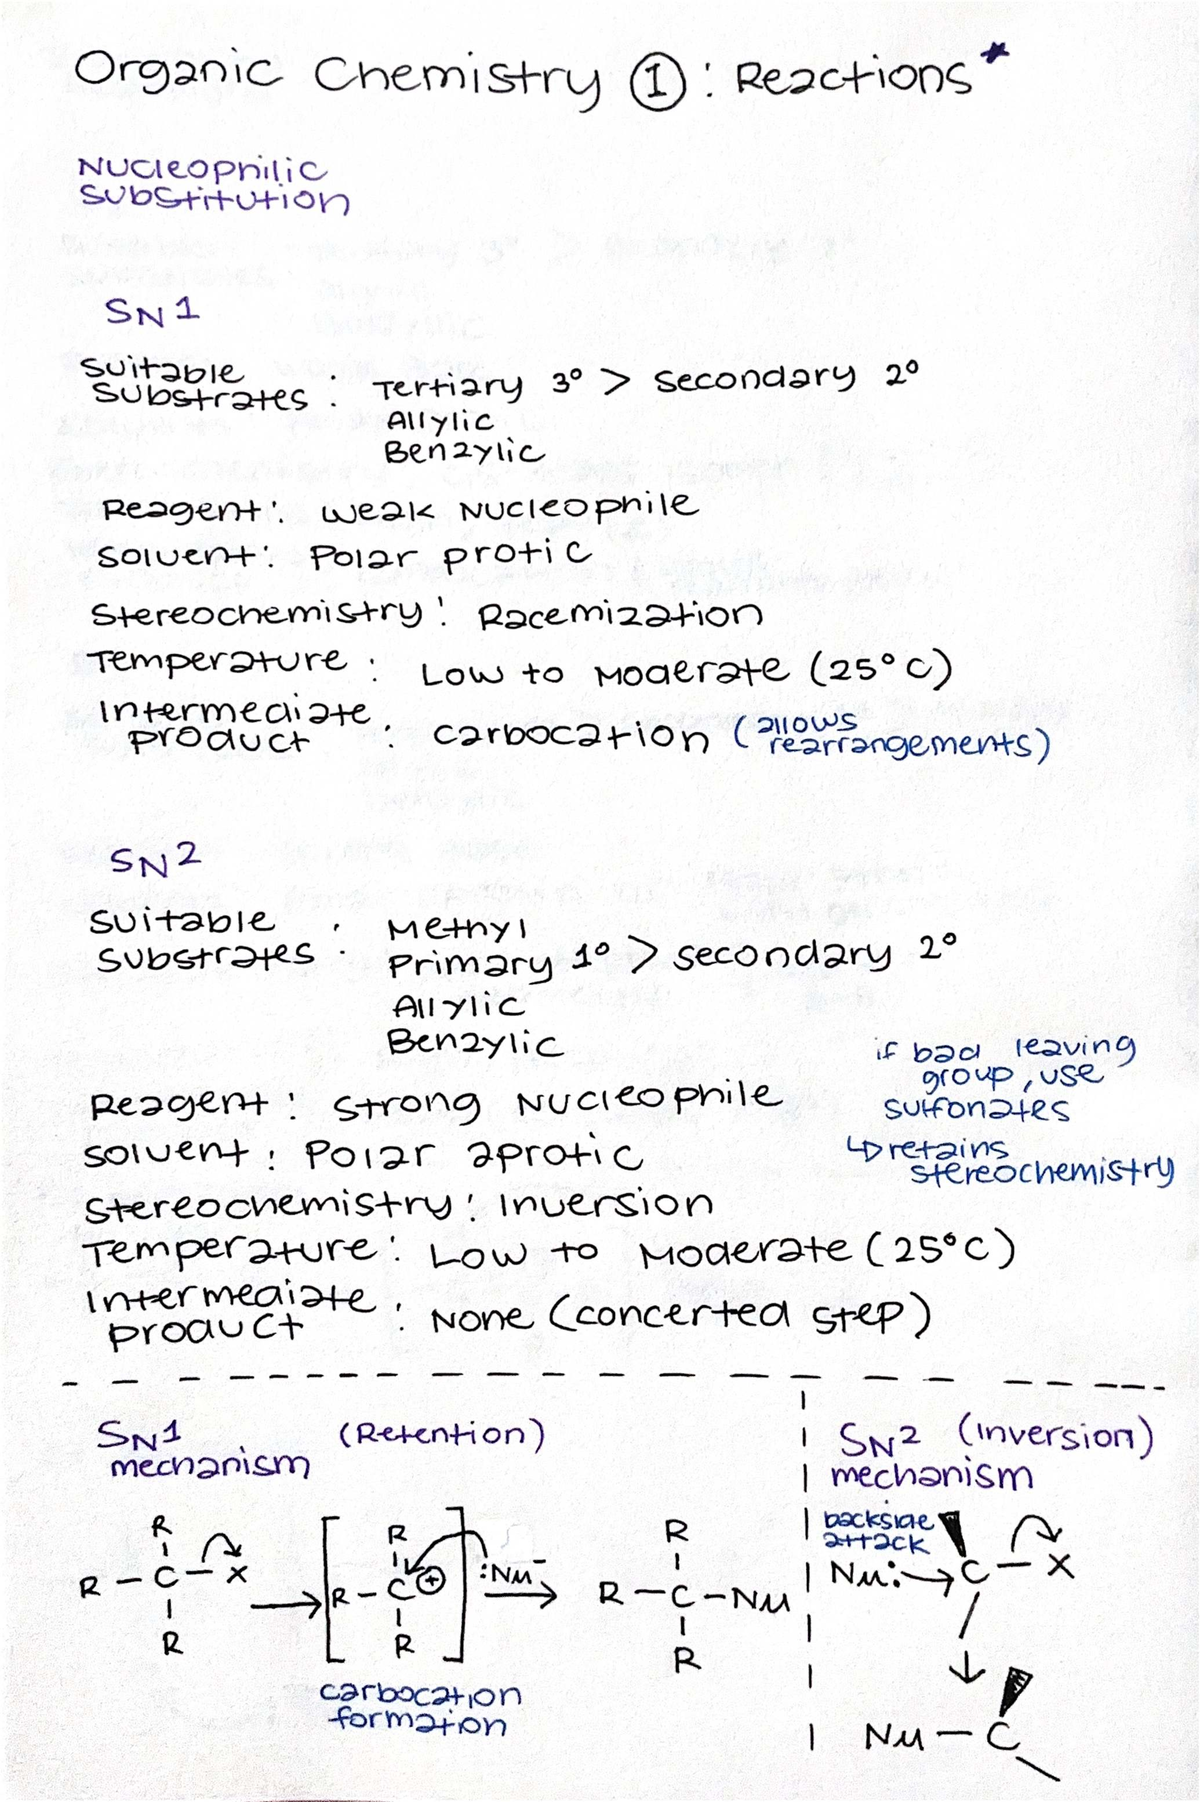 Organic Chemistry ①: Reactions*
Nucleophilic
Substitution
SN1
Suitable
Substrates : Tertiary 3° > Secondary 2°
Allylic
Benzylic
Reagent: Weak Nucleophile
Solvent: Polar protic
Stereochemistry: Racemization
Temperature: Low to Moderate (25°C)
Intermediate
product : Carbocation (allows
rearrangements)
SN2
Suitable
Substrates : Methyl
Primary 1° > Secondary 2°
Allylic
Benzylic
if bad leaving
group, use
sulfonates
↳ retains
stereochemistry
Reagent: Strong Nucleophile
Solvent: Polar aprotic
Stereochemistry: Inversion
Temperature: Low to Moderate (25°C)
Intermediate
product : None (concerted step)
SN1 (Retention)
mechanism
R
R - C - X
R
R
R - C ⊕
R
:Nu⁻
R
R - C - Nu
R
carbocation
formation
SN2 (Inversion)
mechanism
backside
attack
Nu: C - X
Nu - C